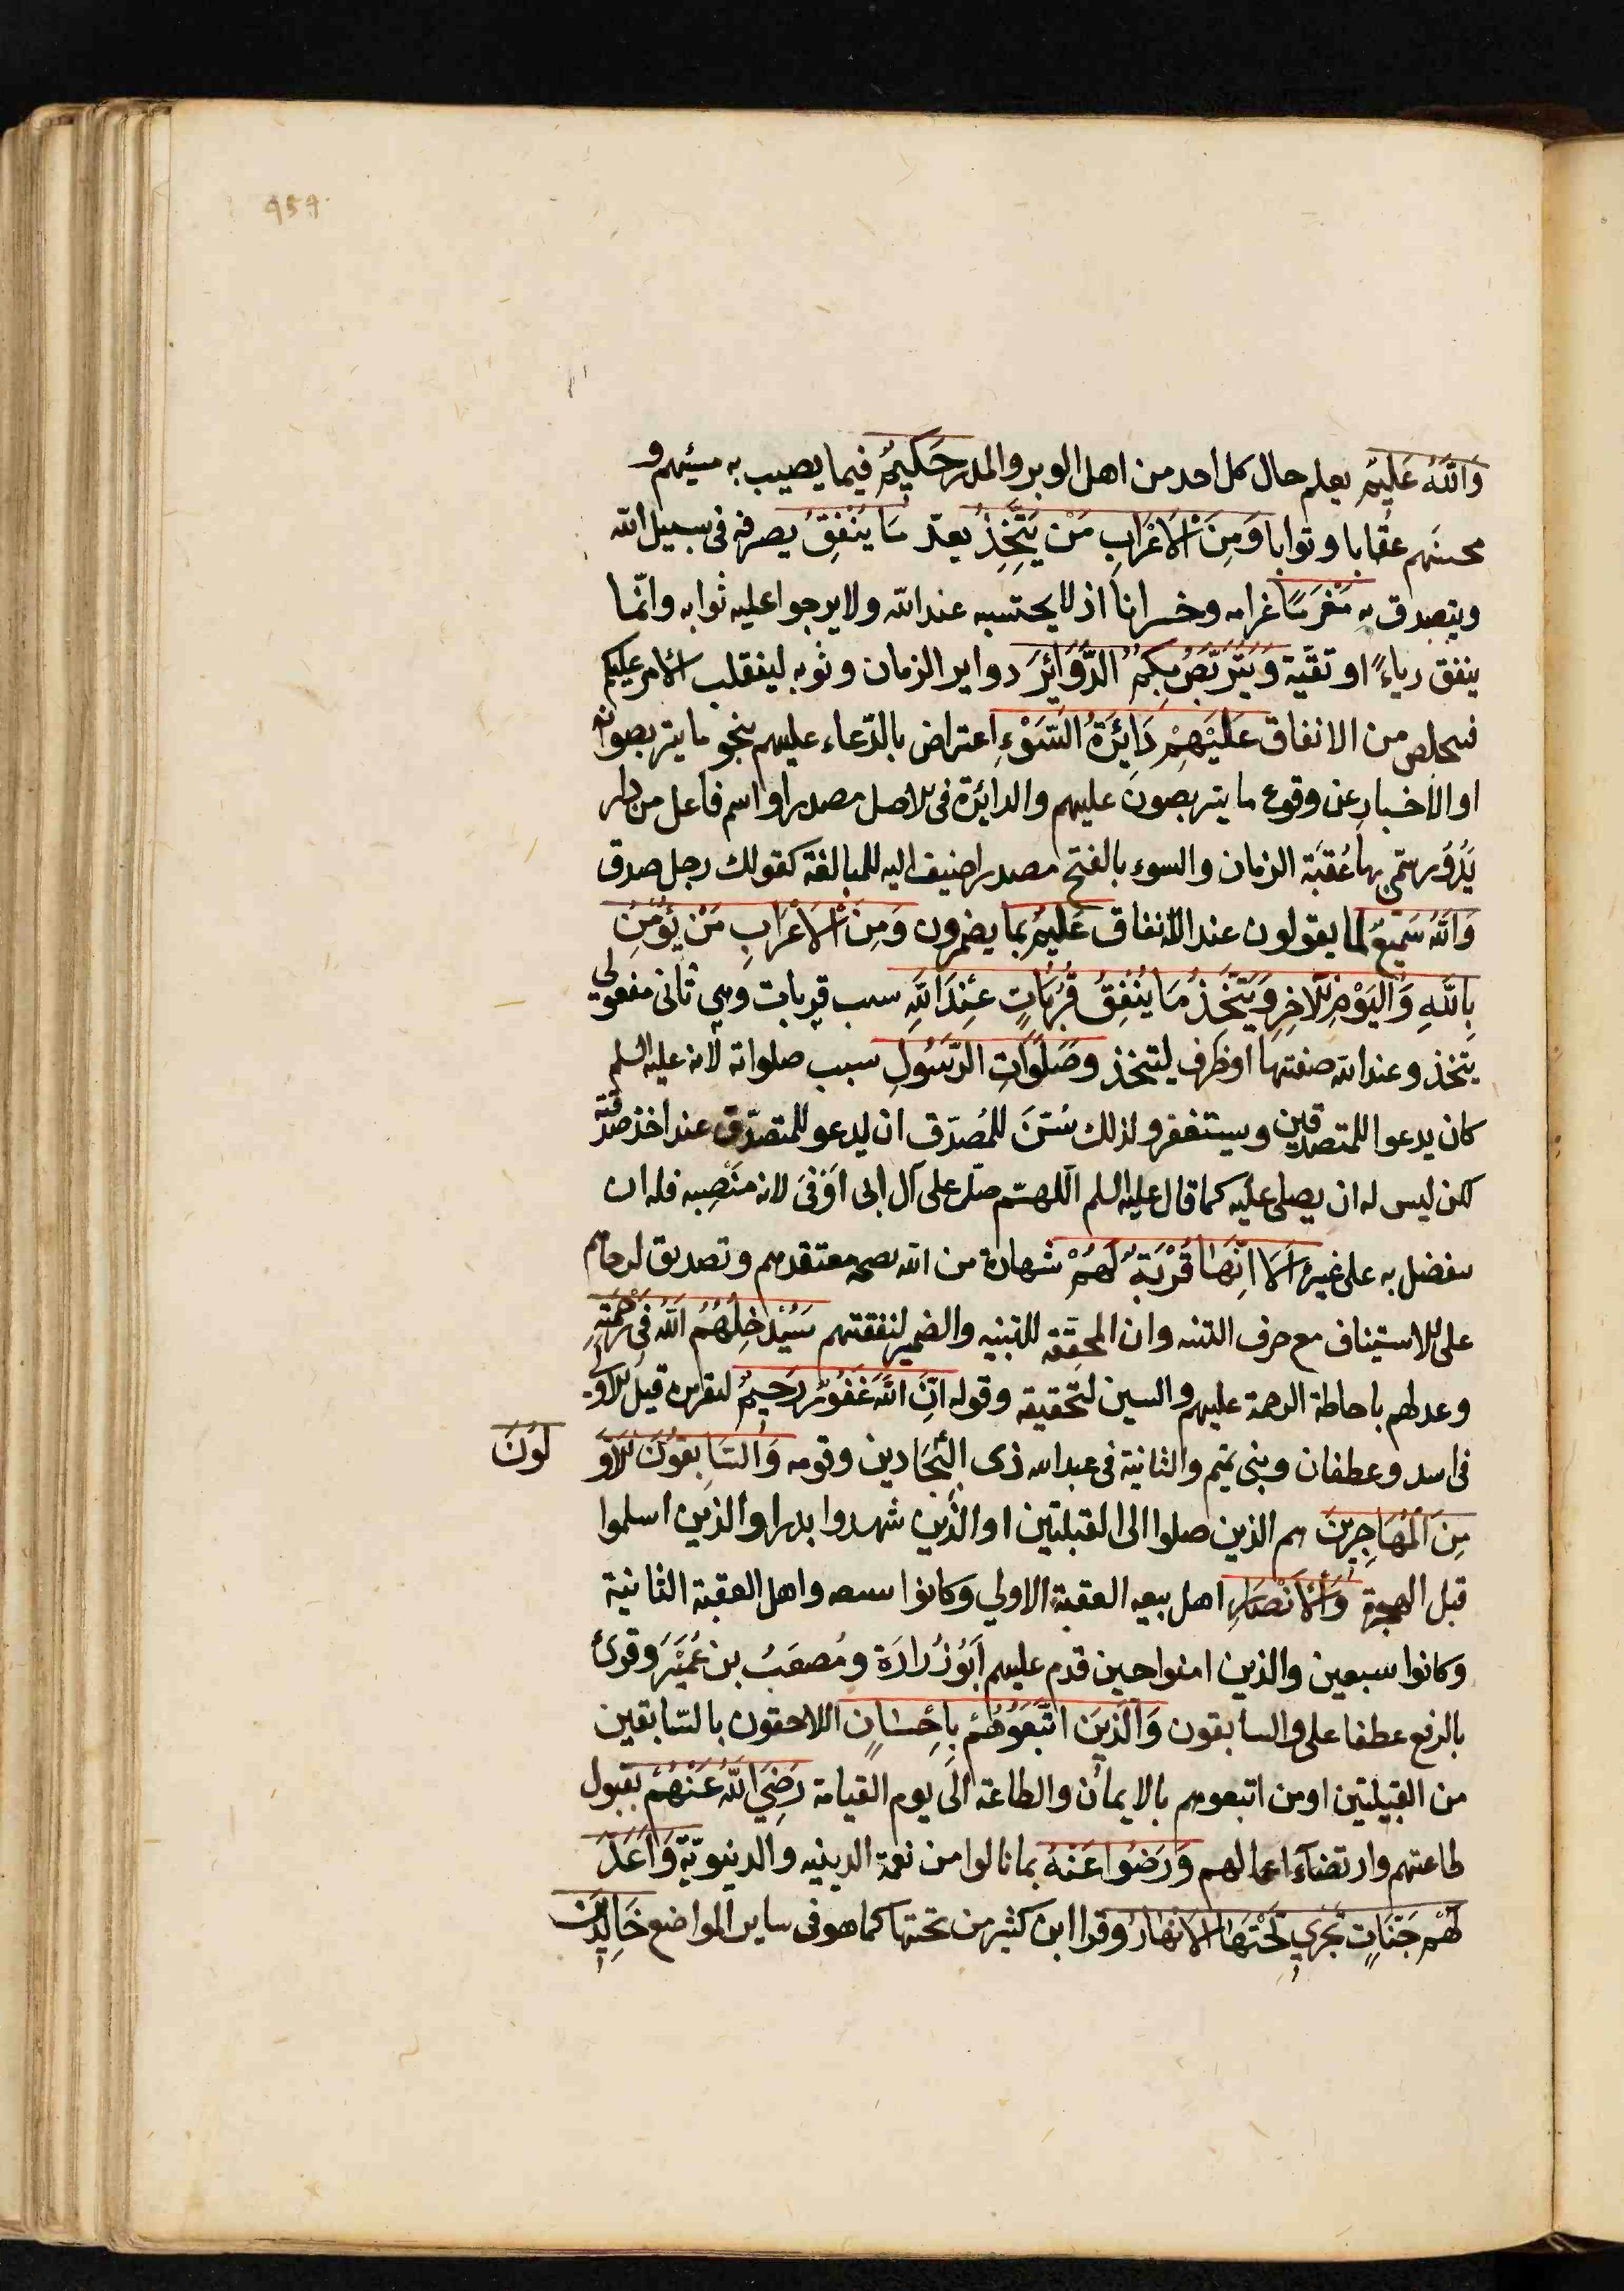 وَاللّٰهُ عَلِيمٌ يعلم حال كل احد من اهل الوبر والمدر حَكِيمٌ فيما يصيب به مسيئهم و
محسنهم عقابا وثوابا وَمِنَ الْاَعْرَابِ مَنْ يَتَّخِذُ يعدّ مَا يُنْفِقُ يصرفه فى سبيل الله
ويتصدق به مَغْرَمًا غرامه وخسرانا اذ لا يحتسبه عند الله ولا يرجوا عليه ثوابه وانّما
ينفق رياءً او تقيّة وَيَتَرَبَّصُ بِكُمُ الدَّوَائِرَ دواير الزمان ونوبه لينقلب الامر عليكم
فيتخلص من الانفاق عَلَيْهِمْ دَائِرَةُ السَّوْءِ اعتراض بالدّعاء عليهم بنحو ما يتربصونه
او الاخبار عن وقوع ما يتربصون عليهم والدائرة فى الاصل مصدر او اسم فاعل من دار
يَدُوُر سمّى بها عُقبَة الزمان والسوء بالفتح مصدر اضيف اليه للمبالغة كقولك رجل صدق
وَاللّٰهُ سَمِيعٌ لما يقولون عند الانفاق عَلِيمٌ بما يضمرون وَمِنَ الْاَعْرَابِ مَنْ يُؤْمِنُ
بِاللّٰهِ وَالْيَوْمِ الْآخِرِ وَيَتَّخِذُ مَا يُنْفِقُ قُرُبَاتٍ عِنْدَ اللّٰهِ سبب قربات وهى ثانى مفعولى
يتخذ وعند الله صفتها او ظرف ليتخذ وَصَلَوَاتِ الرَّسُولِ سبب صلواته لانه عليه السلم
كان يدعوا للمتصدقين ويستغفر ولذلك سُنَّ للمُصدّق ان يدعو للمتصدّق عند اخذ صدقته
لكن ليس له ان يصلى عليه كما قال عليه السلم اللهمّ صلّ على آل ابى اَوْفىَ لانه منَصِبه فله ان
يتفضل به على غيره اَلَا اِنَّهَا قُرْبَةٌ لَهُمْ شهادة من الله بصحة معتقدهم وتصديق لرجائهم
على الاستيناف مع حرف التنبيه وان المحقّقة للنسبة والضمير لنفقتهم سَيُدْخِلُهُمُ اللّٰهُ فِى رَحْمَتِهِ
وعد لهم باحاطة الرحمة عليهم والسين لتحقيقه وقوله اِنَّ اللّٰهَ غَفُورٌ رَحِيمٌ لتقريره قيل الاولى
فى اسد وغطفان وبنى تميم والثانية فى عبد الله ذى البِجَادين وقومه وَالسَّابِقُونَ الْاَوَّلُونَ
مِنَ الْمُهَاجِرِينَ هم الذين صلوا الى القبلتين او الذين شهدوا بدرا والذين اسلموا
قبل الهجرة وَالْاَنْصَارِ اهل بيعه العقبة الاولى وكانوا سبعه واهل العقبة الثانية
وكانوا سبعين والذين امنوا حين قدم عليهم اَبُو زُرَارَة ومُصعَبُ بن عُمَيْر وقرئ
بالرفع عطفا على والسابقون وَالَّذِينَ اتَّبَعُوهُمْ بِاِحْسَانٍ اللاحقون بالسّابقين
من القبيلتين او من اتبعوهم بالايمان والطاعة الى يوم القيامة رَضِيَ اللّٰهُ عَنْهُمْ بقبول
طاعتهم وارتضاء اعمالهم وَرَضُوا عَنْهُ بما نالوا من نعمة الدينيه والدنيويّة وَاَعَدَّ
لَهُمْ جَنَّاتٍ تَجْرِي تَحْتَهَا الْاَنْهَارُ وقرا ابن كثير من تحتها كما هو فى ساير المواضع خَالِدِينَ